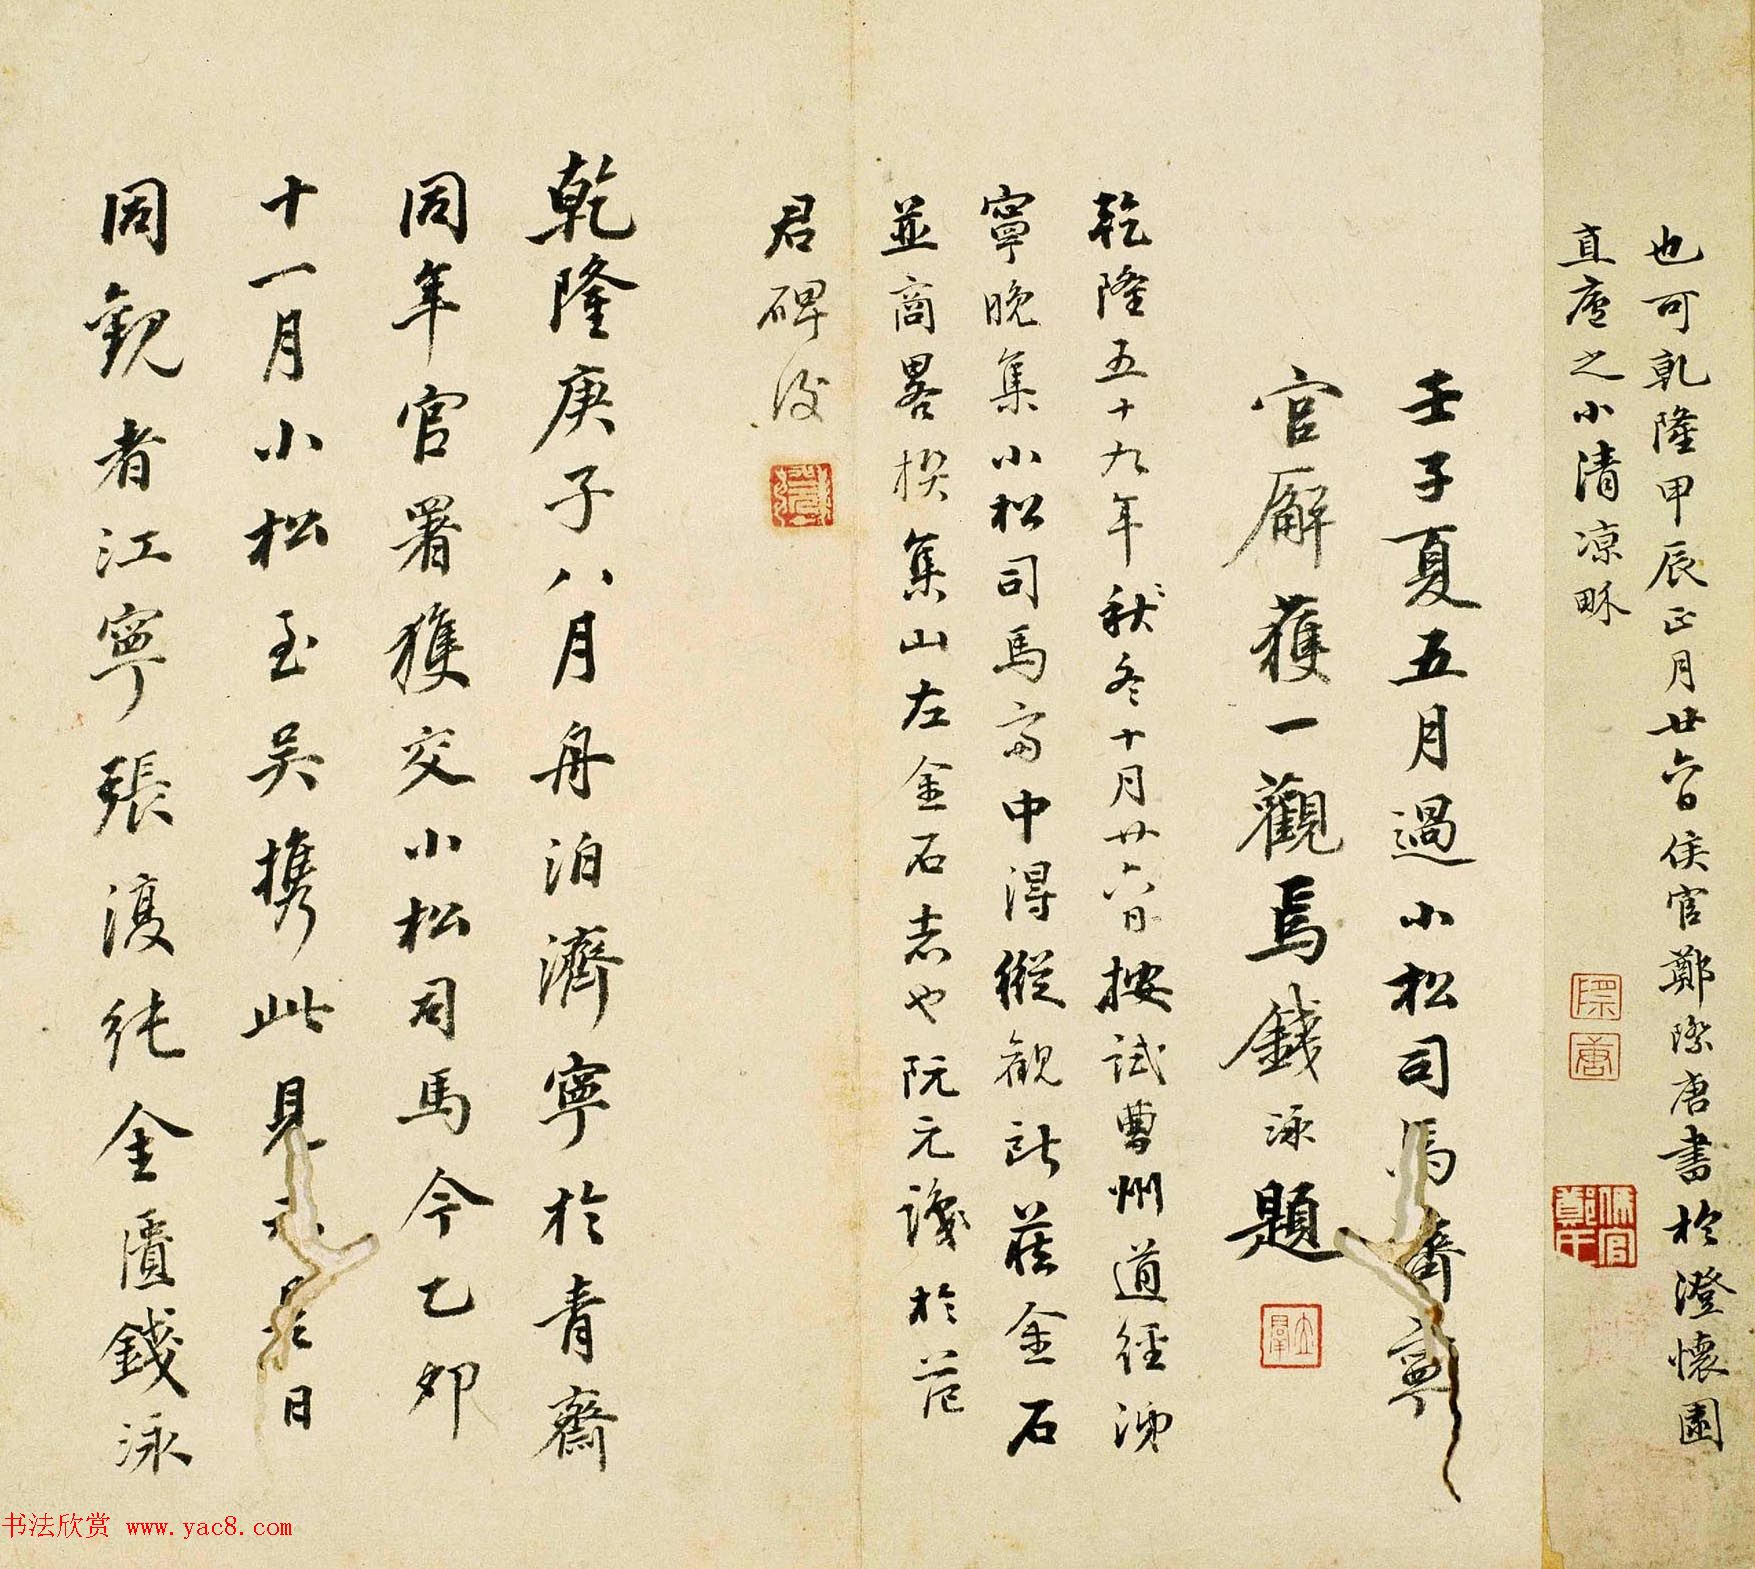 也可乾隆甲辰正月廿六日侯官鄭際唐書於澄懷園
直廬之小清涼𪽈
際唐
壬子夏五月過小松司馬濟寧
官廨獲一觀焉錢泳題
乾隆五十九年秋冬十月廿六日按試曹州道經沛
寧晚集小松司馬齋中得縱觀所藏金石
並商畧撰集山左金石志也阮元識於范
君碑後
乾隆庚子八月舟泊濟寧於青齋
同年官署獲交小松司馬今乙卯
十一月小松至吳携此見示是日
同觀者江寧張復純金匱錢泳
书法欣赏 www.yac8.com